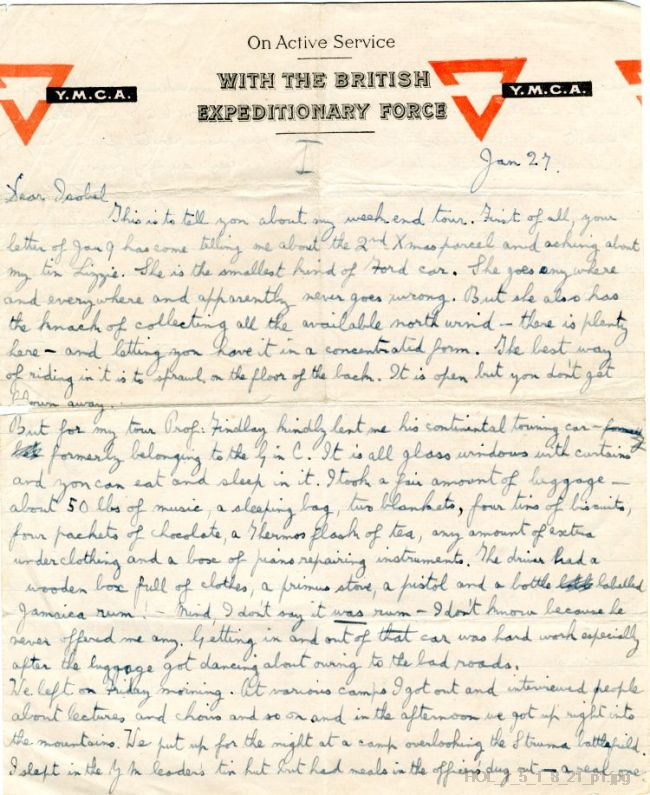 On Active Service
WITH THE BRITISH
EXPEDITIONARY FORCE
Y.M.C.A.
Y.M.C.A.
I
Jan 27.
Dear Isobel
This is to tell you about my week end tour. First of all, your
letter of Jan 9 has come telling me about the 2nd Xmas parcel and asking about
my tin Lizzie. She is the smallest kind of Ford car. She goes anywhere
and everywhere and apparently never goes wrong. But she also has
the knack of collecting all the available north wind – there is plenty
here – and letting you have it in a concentrated form. The best way
of riding in it is to sprawl on the floor of the back. It is open but you don't get
blown away.
But for my tour Prof: Findlay kindly lent me his continental touring car –
formerly belonging to the G in C. It is all glass windows with curtains
and you can eat and sleep in it. I took a fair amount of luggage –
about 50 lbs of music, a sleeping bag, two blankets, four tins of biscuits,
four packets of chocolate, a Thermos flask of tea, any amount of extra
underclothing and a box of piano repairing instruments. The driver had a
wooden box full of clothes, a primus stove, a pistol and a bottle labelled
Jamaica rum! – Mind, I don't say it was rum – I don't know because he
never offered me any. Getting in and out of that car was hard work especially
after the luggage got dancing about owing to the bad roads.
We left on Friday morning. At various camps I got out and interviewed people
about lectures and choirs and so on and in the afternoon we got up right into
the mountains. We put up for the night at a camp overlooking the Struma battlefield.
I slept in the Y M leader's tin hut but had meals in the officers' dug out – a real one
HOL_1_5_1_8_21_p1.jpg